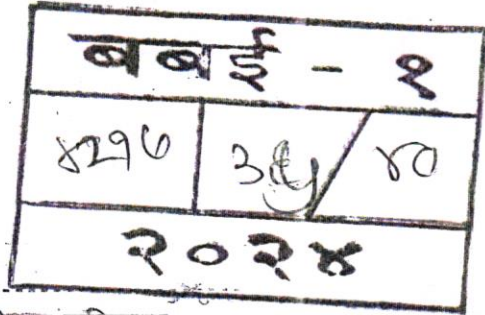 बबई - १
४२१७ | ३५ / ४०
२०२४